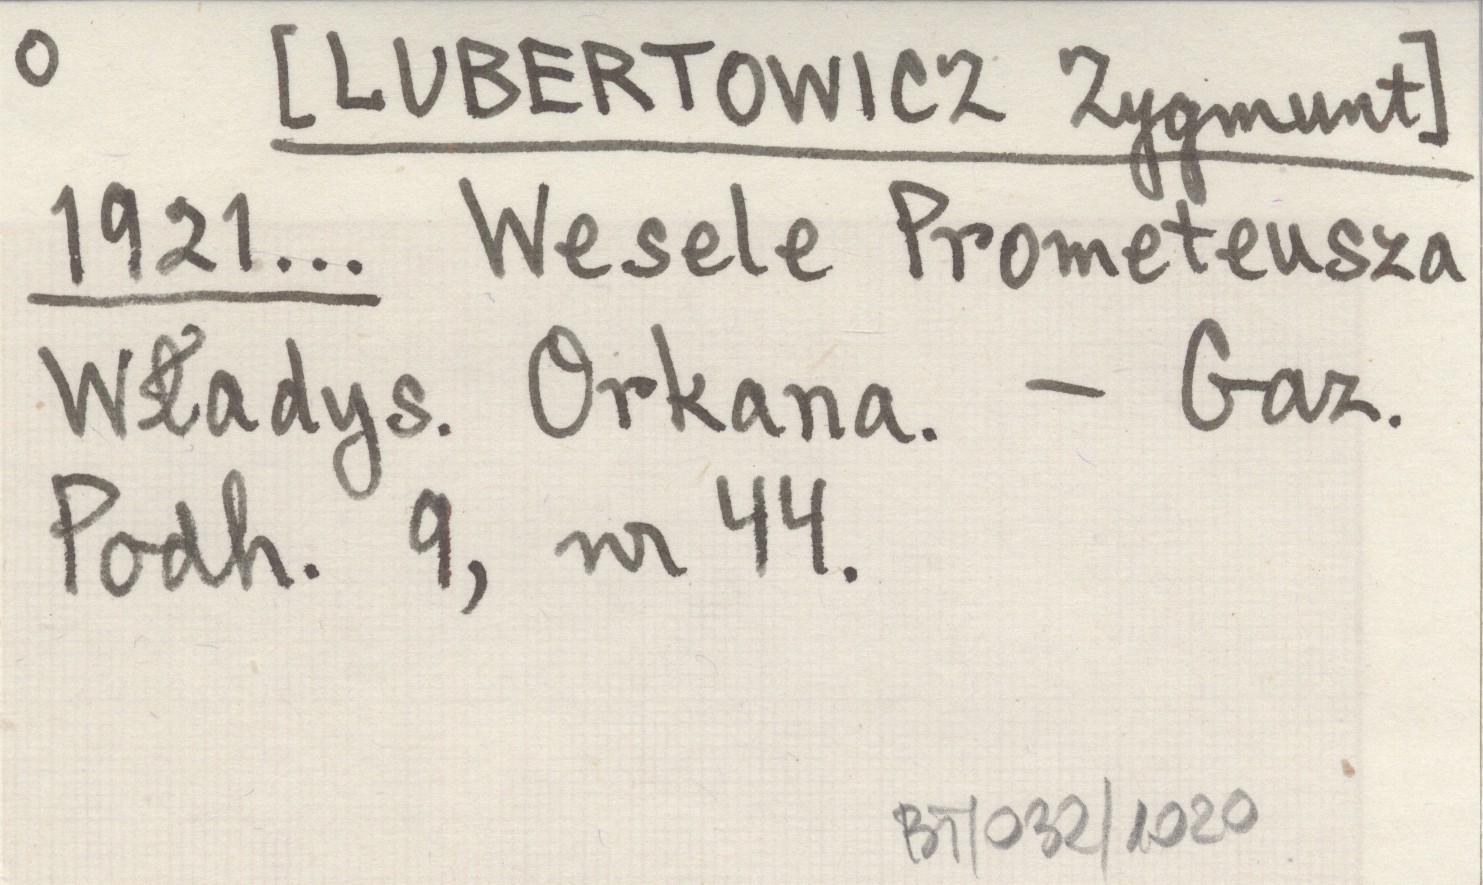 O [LUBERTOWICZ Zygmunt]
1921... Wesele Prometeusza
Władys. Orkana. - Gaz.
Podh. 9, nr 44.
BT/032/1020